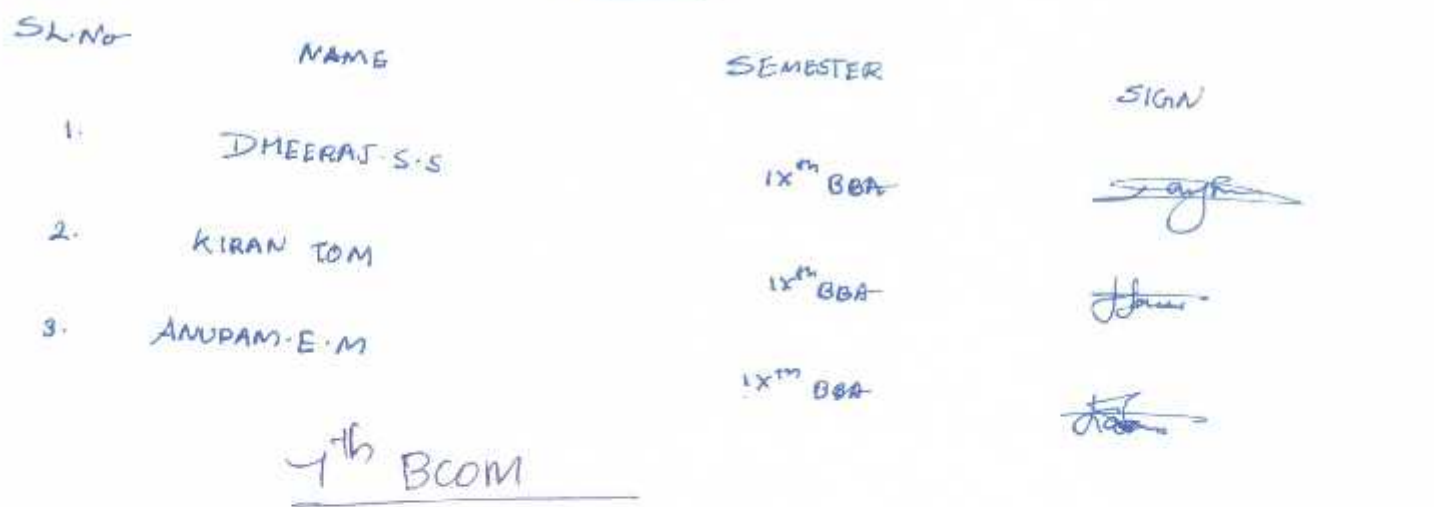 SL.No NAME SEMESTER SIGN
1. DHEERAJ.S.S IXth BBA
2. KIRAN TOM IXth BBA
3. ANUPAM.E.M IXth BBA
th BCOM